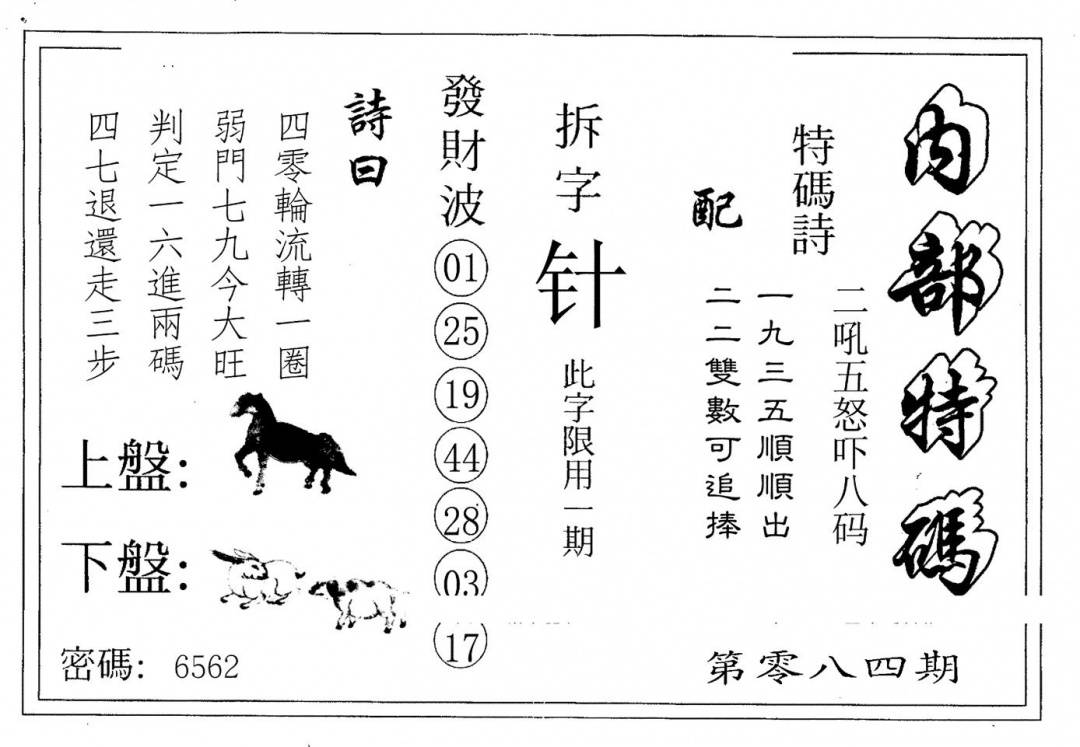 內部特碼
特碼詩
二吼五怒吓八码
一九三五順順出
配
二二雙數可追捧
拆字
针
此字限用一期
發財波
01
25
19
44
28
03
17
詩曰
四零輪流轉一圈
弱門七九今大旺
判定一六進兩碼
四七退還走三步
上盤：
下盤：
密碼：6562
第零八四期